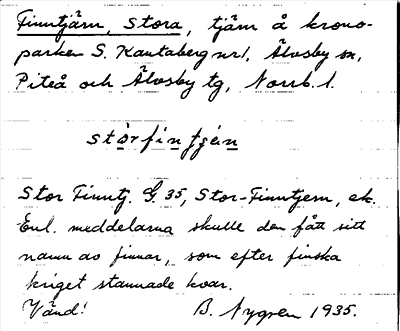 Finntjärn, Stora, tjärn å krono-
parken S. Kantaberg nr 1, Älvsby sn,
Piteå och Älvsby tg, Norrb. l.
stòrfìntjän
Stor Finntj. G. 35, Stor-Finntjern, ek.
Enl. meddelarna skulle den fått sitt
namn av finnar, som efter finska
kriget stannade kvar.
Vänd! B. Nygren 1935.